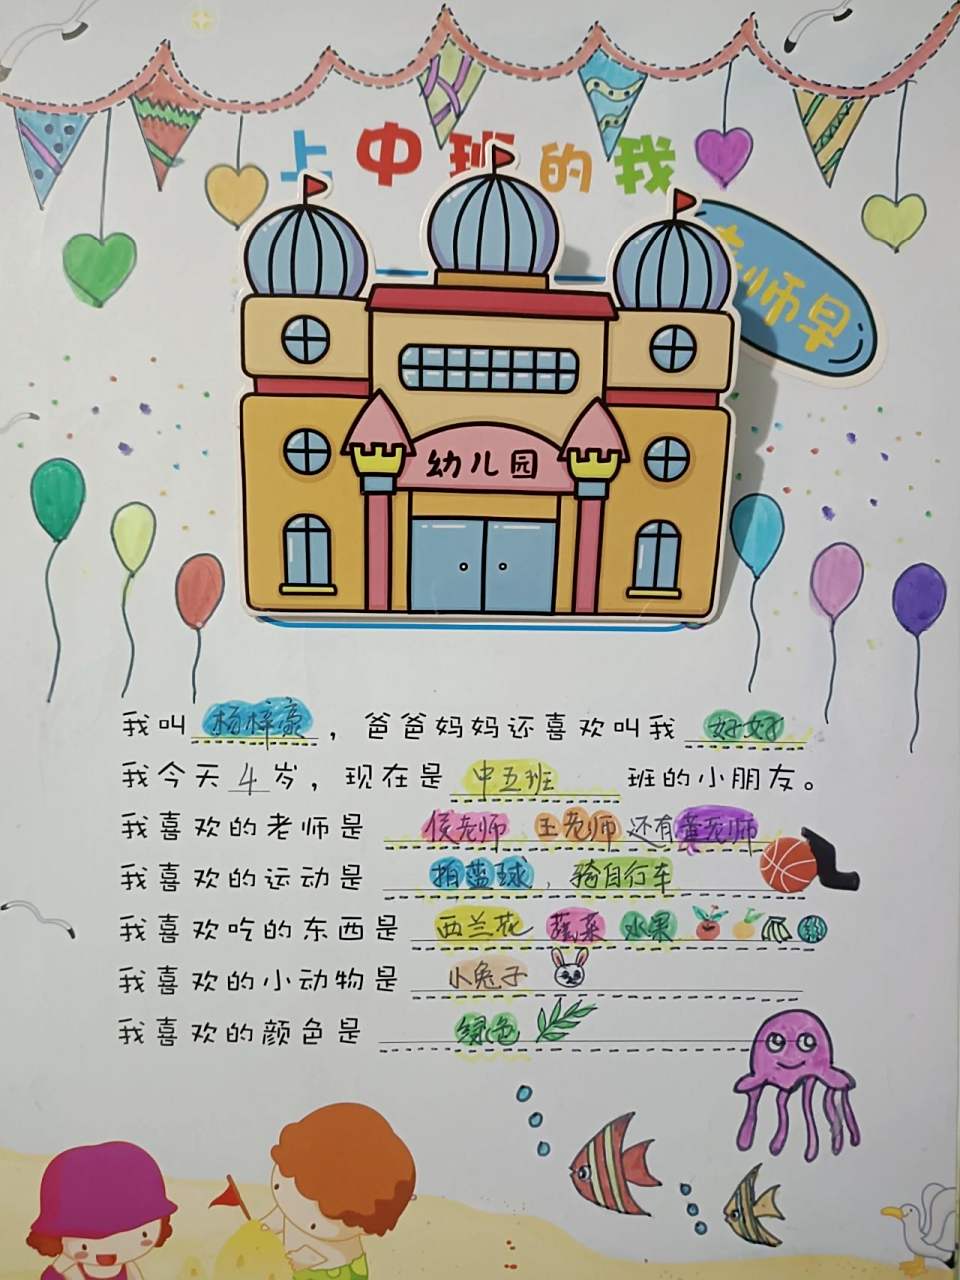 上中班的我
老师早
幼儿园
我叫杨梓豪，爸爸妈妈还喜欢叫我好好
我今天4岁，现在是中五班班的小朋友。
我喜欢的老师是侯老师 王老师还有董老师
我喜欢的运动是拍蓝球，骑自行车
我喜欢吃的东西是西兰花 蔬菜 水果
我喜欢的小动物是小兔子
我喜欢的颜色是绿色